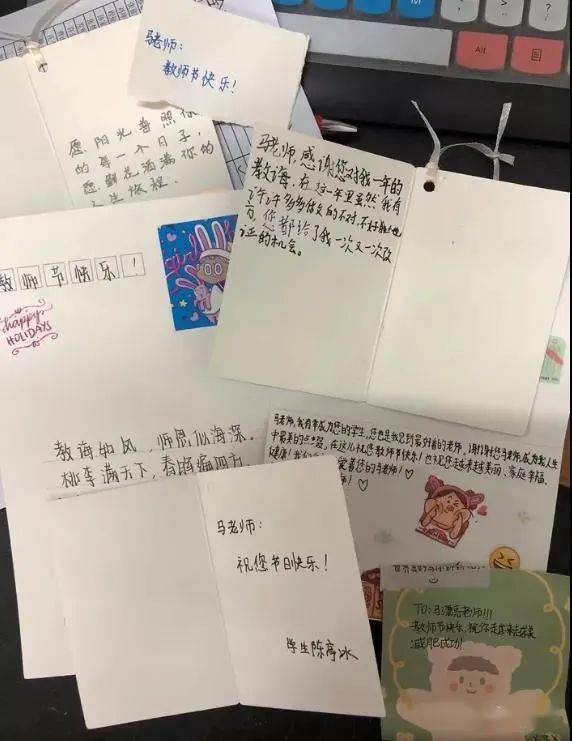 马老师：
教师节快乐！
愿阳光普照你
的每一个日子，
愿鲜花洒满你的
人生旅程．
马老师感谢您对我一年的
教诲．在这一年里虽然我有
许许多多做的不对，不好的地
方，您都给了我一次又一次改
正的机会。
教师节快乐！
happy
HOLIDAYS
教诲如风，师恩似海深．
桃李满天下，春晖遍四方．
马老师，我有幸成为您的学生，您也是我见到最好看的老师，谢谢您马老师，成为我人生
中最美的点缀，在这儿祝您教师节快乐！也祝您越来越美丽、家庭幸福、
健康！
爱着您的马老师！
马老师：
祝您节日快乐！
学生陈亭冰
TO：马漂亮老师!!!
教师节快乐，祝你越来越美
减肥成功！
Alt